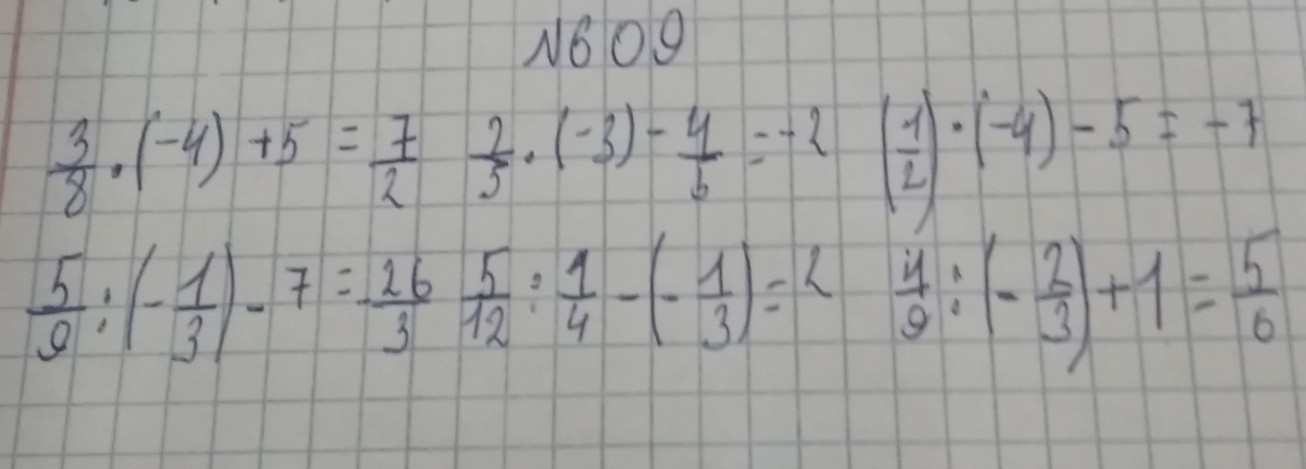 N609
3/8 · (-4) + 5 = 7/2   2/5 · (-3) - 4/5 = -2   (1/2) · (-4) - 5 = -7
5/9 : (-1/3) - 7 = -26/3   5/12 : 1/4 - (-1/3) = 2   1/9 : (-2/3) + 1 = 5/6